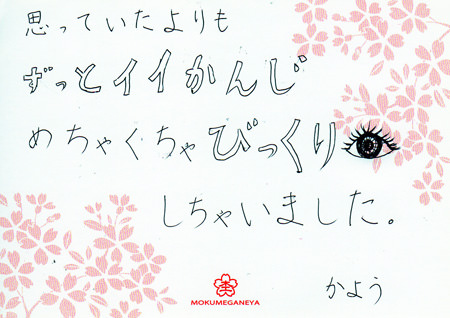 思っていたよりも
ずっとイイかんじ
めちゃくちゃびっくり
しちゃいました。
かよう
MOKUMEGANEYA